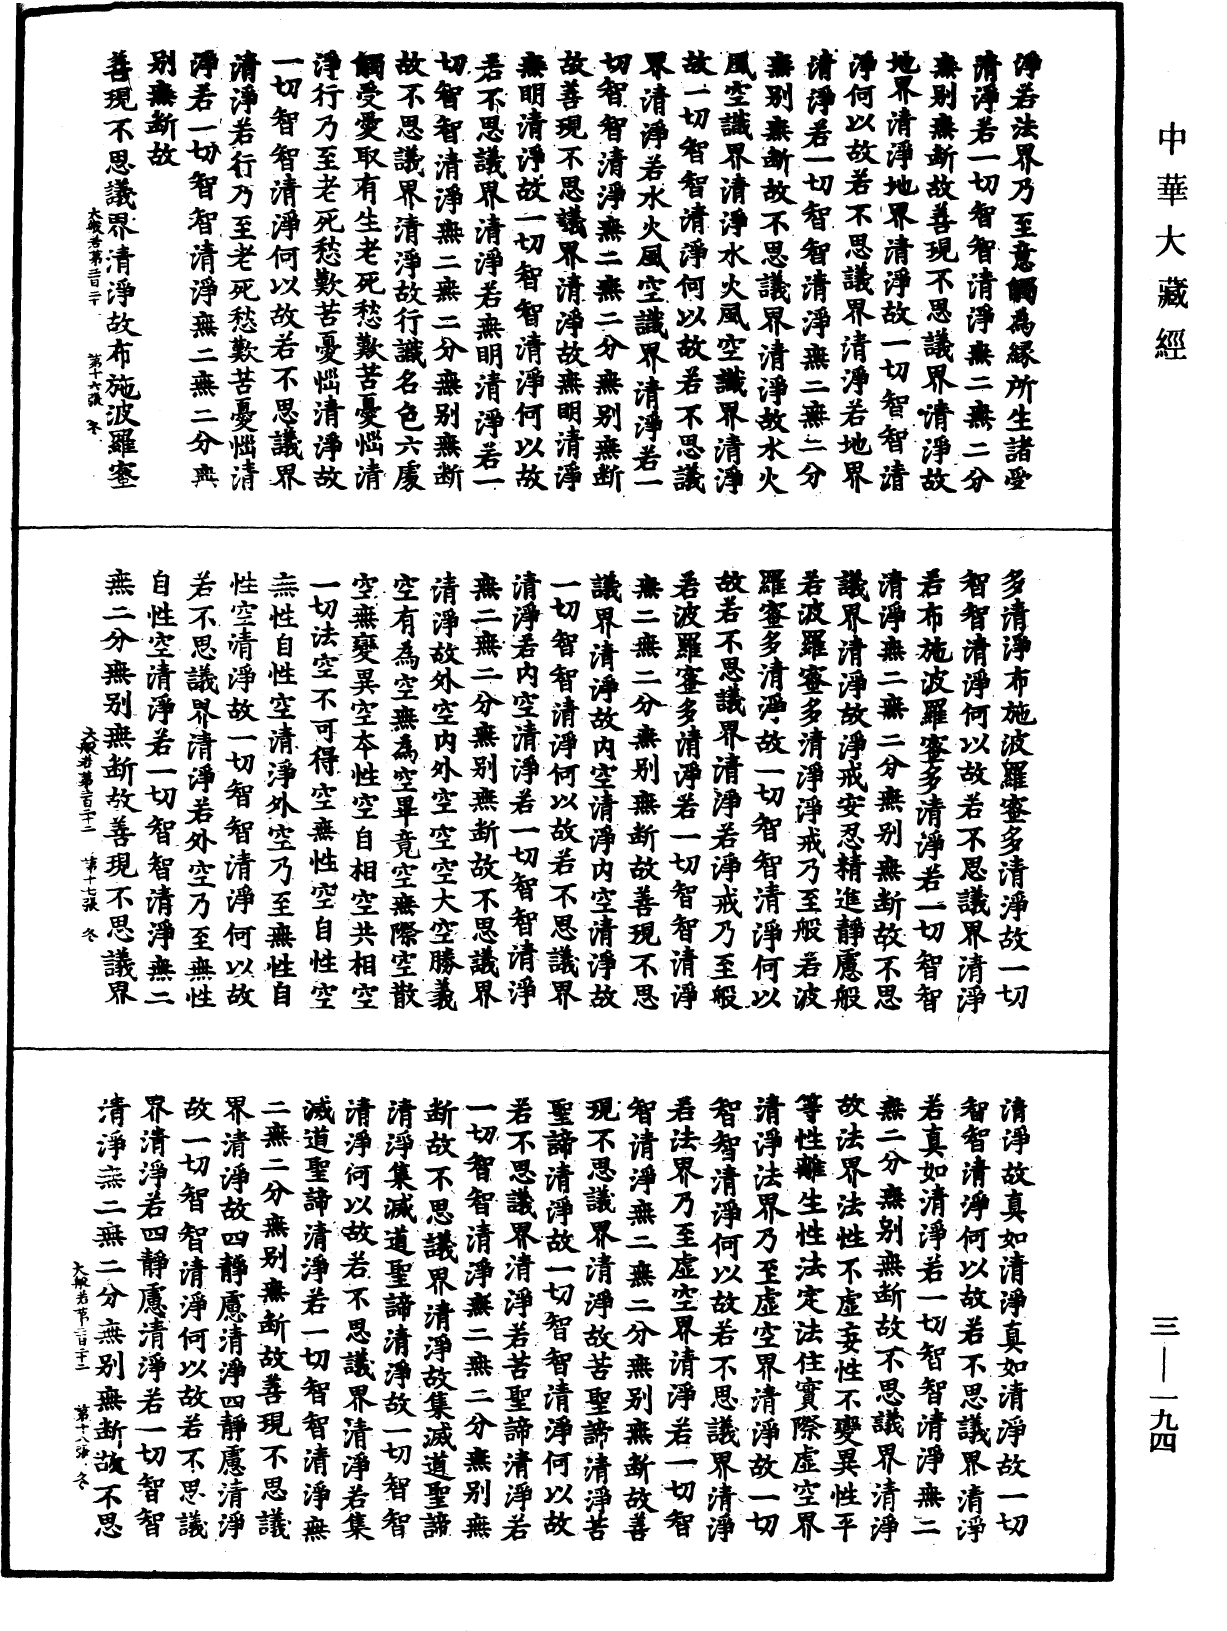 中華大藏經
淨若法界乃至意觸為緣所生諸受
清淨若一切智智清淨無二無二分
無別無斷故善現不思議界清淨故
地界清淨地界清淨故一切智智清
淨何以故若不思議界清淨若地界
清淨若一切智智清淨無二無二分
無別無斷故不思議界清淨故水火
風空識界清淨水火風空識界清淨
故一切智智清淨何以故若不思議
界清淨若水火風空識界清淨若一
切智智清淨無二無二分無別無斷
故善現不思議界清淨故無明清淨
無明清淨故一切智智清淨何以故
若不思議界清淨若無明清淨若一
切智智清淨無二無二分無別無斷
故不思議界清淨故行識名色六處
觸受愛取有生老死愁歎苦憂惱清
淨行乃至老死愁歎苦憂惱清淨故
一切智智清淨何以故若不思議界
清淨若行乃至老死愁歎苦憂惱清
淨若一切智智清淨無二無二分無
別無斷故
善現不思議界清淨故布施波羅蜜
大般若第二百二十二 第十六張 冬
多清淨布施波羅蜜多清淨故一切
智智清淨何以故若不思議界清淨
若布施波羅蜜多清淨若一切智智
清淨無二無二分無別無斷故不思
議界清淨故淨戒安忍精進靜慮般
若波羅蜜多清淨淨戒乃至般若波
羅蜜多清淨故一切智智清淨何以
故若不思議界清淨若淨戒乃至般
若波羅蜜多清淨若一切智智清淨
無二無二分無別無斷故善現不思
議界清淨故內空清淨內空清淨故
一切智智清淨何以故若不思議界
清淨若內空清淨若一切智智清淨
無二無二分無別無斷故不思議界
清淨故外空內外空空空大空勝義
空有為空無為空畢竟空無際空散
空無變異空本性空自相空共相空
一切法空不可得空無性空自性空
無性自性空清淨外空乃至無性自
性空清淨故一切智智清淨何以故
若不思議界清淨若外空乃至無性
自性空清淨若一切智智清淨無二
無二分無別無斷故善現不思議界
大般若第二百二十二 第十七張 冬
清淨故真如清淨真如清淨故一切
智智清淨何以故若不思議界清淨
若真如清淨若一切智智清淨無二
無二分無別無斷故不思議界清淨
故法界法性不虛妄性不變異性平
等性離生性法定法住實際虛空界
清淨法界乃至虛空界清淨故一切
智智清淨何以故若不思議界清淨
若法界乃至虛空界清淨若一切智
智清淨無二無二分無別無斷故善
現不思議界清淨故苦聖諦清淨苦
聖諦清淨故一切智智清淨何以故
若不思議界清淨若苦聖諦清淨若
一切智智清淨無二無二分無別無
斷故不思議界清淨故集滅道聖諦
清淨集滅道聖諦清淨故一切智智
清淨何以故若不思議界清淨若集
滅道聖諦清淨若一切智智清淨無
二無二分無別無斷故善現不思議
界清淨故四靜慮清淨四靜慮清淨
故一切智智清淨何以故若不思議
界清淨若四靜慮清淨若一切智智
清淨無二無二分無別無斷故不思
大般若第二百二十二 第十八張 冬
三—一九四